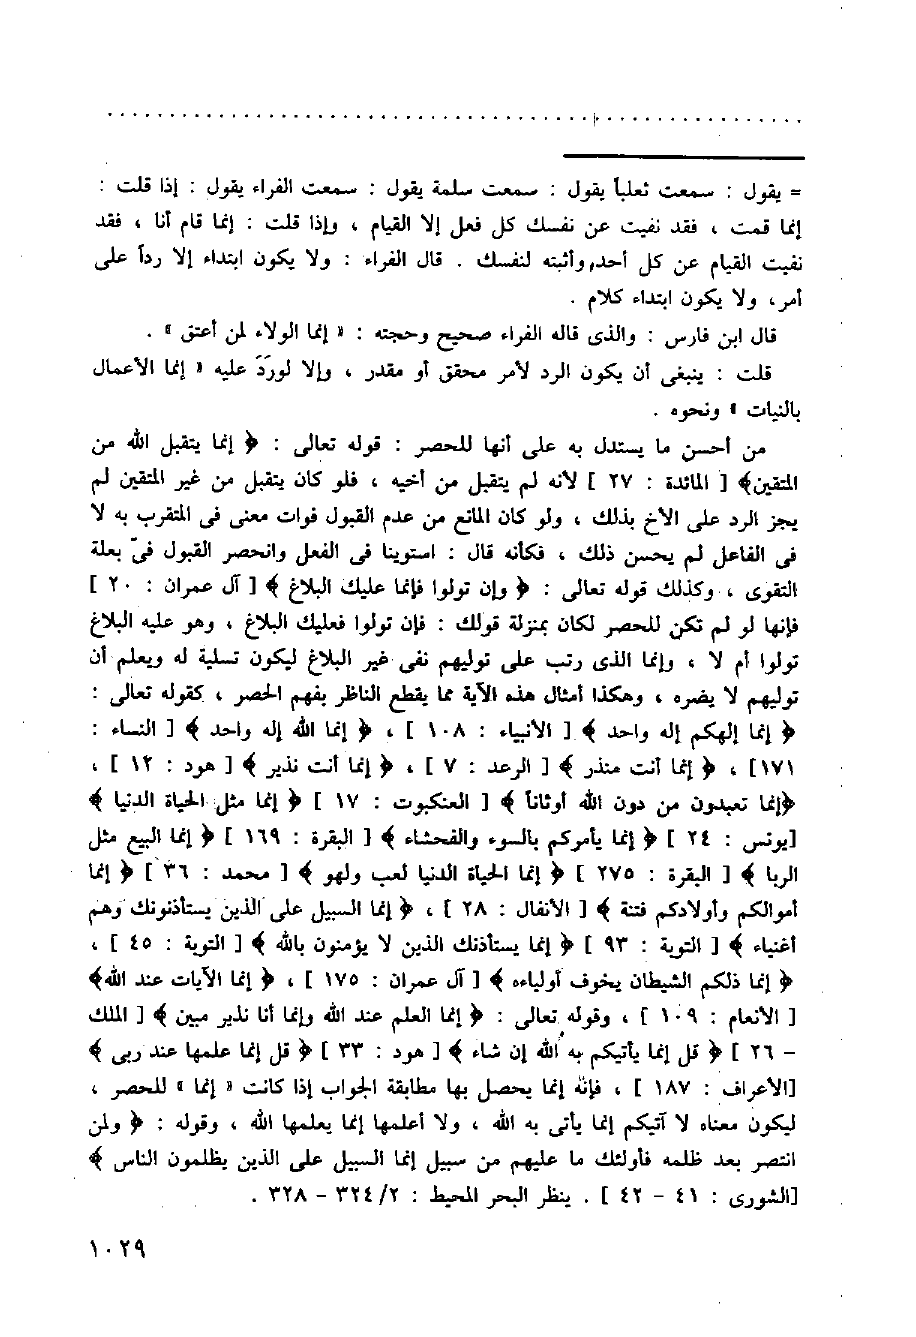 = يقول : سمعت ثعلباً يقول : سمعت سلمة يقول : سمعت الفراء يقول : إذا قلت :
إنما قمت ، فقد نفيت عن نفسك كل فعل إلا القيام ، وإذا قلت : إنما قام أنا ، فقد
نفيت القيام عن كل أحد، وأثبته لنفسك . قال الفراء : ولا يكون ابتداء إلا رداً على
أمر، ولا يكون ابتداء كلام .
قال ابن فارس : والذى قاله الفراء صحيح وحجته : « إنما الولاء لمن أعتق » .
قلت : ينبغى أن يكون الرد لأمر محقق أو مقدر ، وإلا لورَدَ عليه « إنما الأعمال
بالنيات » ونحوه .
من أحسن ما يستدل به على أنها للحصر : قوله تعالى : ﴿ إنما يتقبل الله من
المتقين﴾ [ المائدة : ٢٧ ] لأنه لم يتقبل من أخيه ، فلو كان يتقبل من غير المتقين لم
يجز الرد على الأخ بذلك ، ولو كان المانع من عدم القبول فوات معنى فى المتقرب به لا
فى الفاعل لم يحسن ذلك ، فكأنه قال : استوينا فى الفعل وانحصر القبول فىّ بعلة
التقوى ، وكذلك قوله تعالى : ﴿ وإن تولوا فإنما عليك البلاغ ﴾ [ آل عمران : ٢٠ ]
فإنها لو لم تكن للحصر لكان بمنزلة قولك : فإن تولوا فعليك البلاغ ، وهو عليه البلاغ
تولوا أم لا ، وإنما الذى رتب على توليهم نفى غير البلاغ ليكون تسلية له ويعلم أن
توليهم لا يضره ، وهكذا أمثال هذه الآية مما يقطع الناظر بفهم الحصر ، كقوله تعالى :
﴿ إنما إلهكم إله واحد ﴾ [ الأنبياء : ١٠٨ ] ، ﴿ إنما الله إله واحد ﴾ [ النساء :
١٧١] ، ﴿ إنما أنت منذر ﴾ [ الرعد : ٧ ] ، ﴿ إنما أنت نذير ﴾ [ هود : ١٢ ] ،
﴿إنما تعبدون من دون الله أوثاناً ﴾ [ العنكبوت : ١٧ ] ﴿ إنما مثل الحياة الدنيا ﴾
[يونس : ٢٤ ] ﴿ إنما يأمركم بالسوء والفحشاء ﴾ [ البقرة : ١٦٩ ] ﴿ إنما البيع مثل
الربا ﴾ [ البقرة : ٢٧٥ ] ﴿ إنما الحياة الدنيا لعب ولهو ﴾ [ محمد : ٣٦ ] ﴿ إنما
أموالكم وأولادكم فتنة ﴾ [ الأنفال : ٢٨ ] ، ﴿ إنما السبيل على الذين يستأذنونك وهم
أغنياء ﴾ [ التوبة : ٩٣ ] ﴿ إنما يستأذنك الذين لا يؤمنون بالله ﴾ [ التوبة : ٤٥ ] ،
﴿ إنما ذلكم الشيطان يخوف أولياءه ﴾ [ آل عمران : ١٧٥ ] ، ﴿ إنما الآيات عند الله﴾
[ الأنعام : ١٠٩ ] ، وقوله تعالى : ﴿ إنما العلم عند الله وإنما أنا نذير مبين ﴾ [ الملك
- ٢٦ ] ﴿ قل إنما يأتيكم به الله إن شاء ﴾ [ هود : ٣٣ ] ﴿ قل إنما علمها عند ربى ﴾
[الأعراف : ١٨٧ ] ، فإنه إنما يحصل بها مطابقة الجواب إذا كانت « إنما » للحصر ،
ليكون معناه لا آتيكم إنما يأتى به الله ، ولا أعلمها إنما يعلمها الله ، وقوله : ﴿ ولمن
انتصر بعد ظلمه فأولئك ما عليهم من سبيل إنما السبيل على الذين يظلمون الناس ﴾
[الشورى : ٤١ - ٤٢ ] . ينظر البحر المحيط : ٣٢٤/٢ - ٣٢٨ .
١٠٢٩